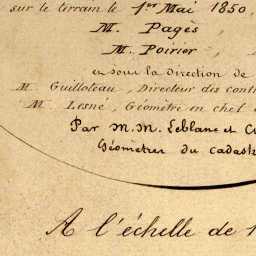 sur le terrain le 1er Mai 1850,
M. Pagès,
M. Poirier,
et sous la direction de
M. Guilloteau, Directeur des cont
M. Lesné, Géomètre en chef
Par M.M. Leblanc et
Géomètres du cadast
A l'échelle de 1